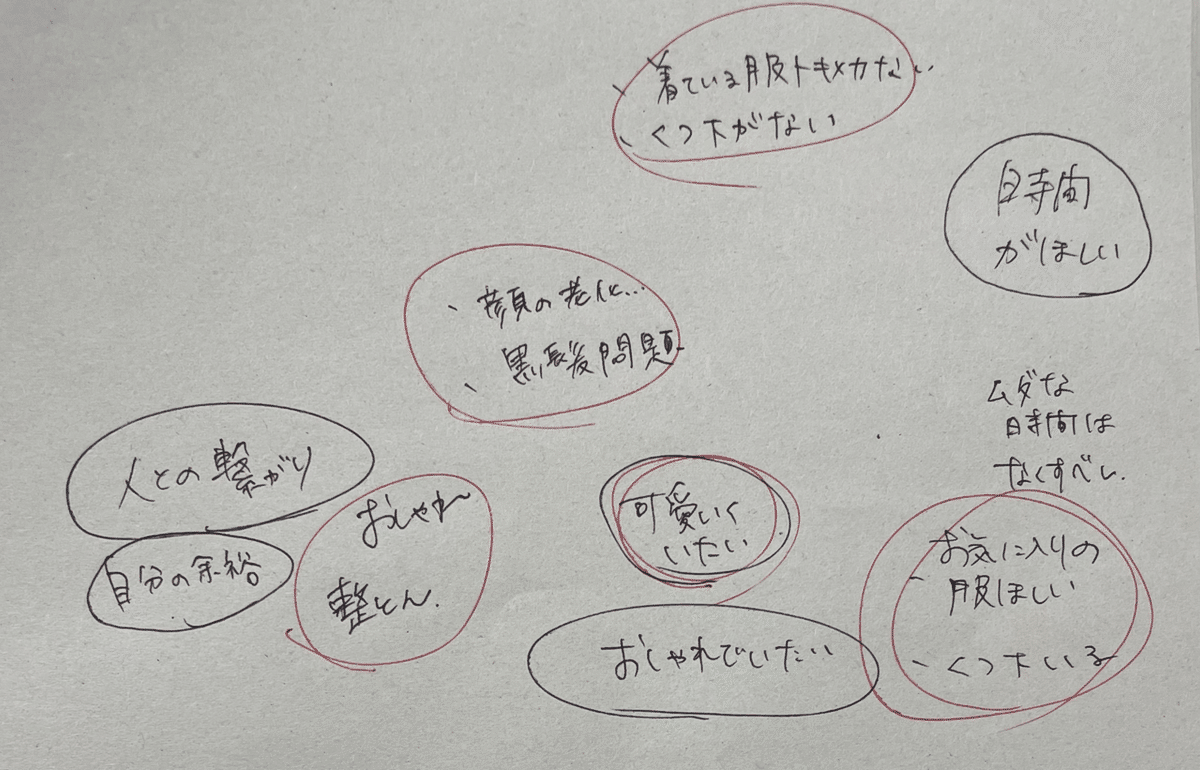 着ている服トキメカない
くつ下がない
時間
がほしい
顔の老化…
黒髪問題
ムダな
時間は
なくすべし.
人との繋がり
おしゃれ
可愛いく
いたい
お気に入りの
服ほしい
自分の余裕
整とん.
おしゃれでいたい
くつ下いる